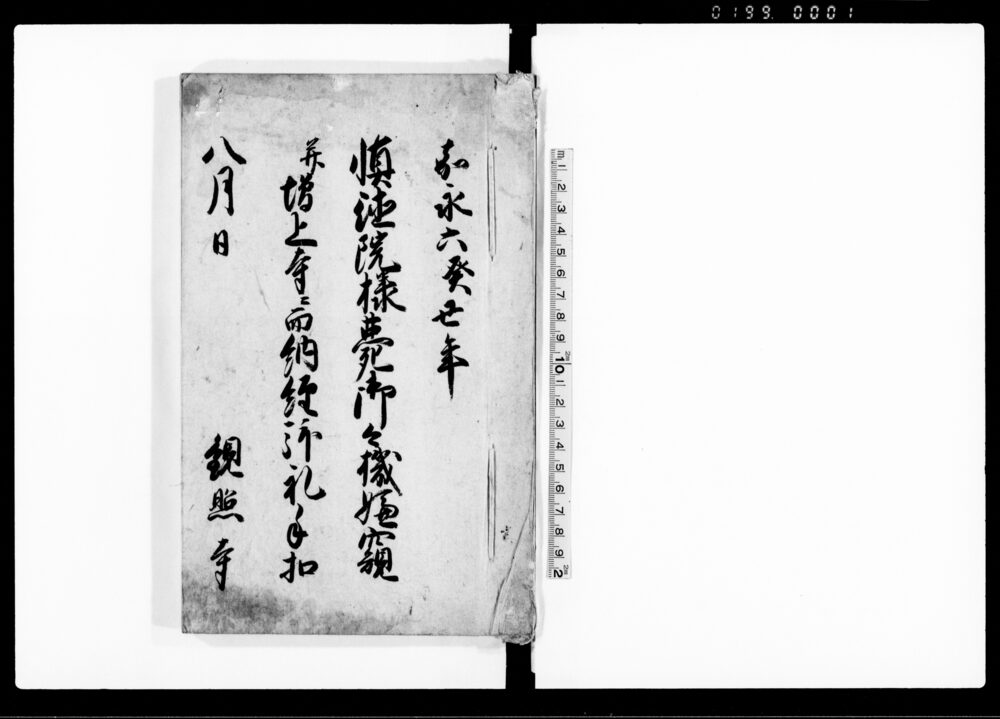 0199 0001
嘉永六癸丑年
慎徳院様薨御ニ付機嫌窺
并増上寺ニ而納経拝礼手扣
八月日
観照寺
m 1 2 3 4 5 6 7 8 9 10 1 2 3 4 5 6 7 8 9 2